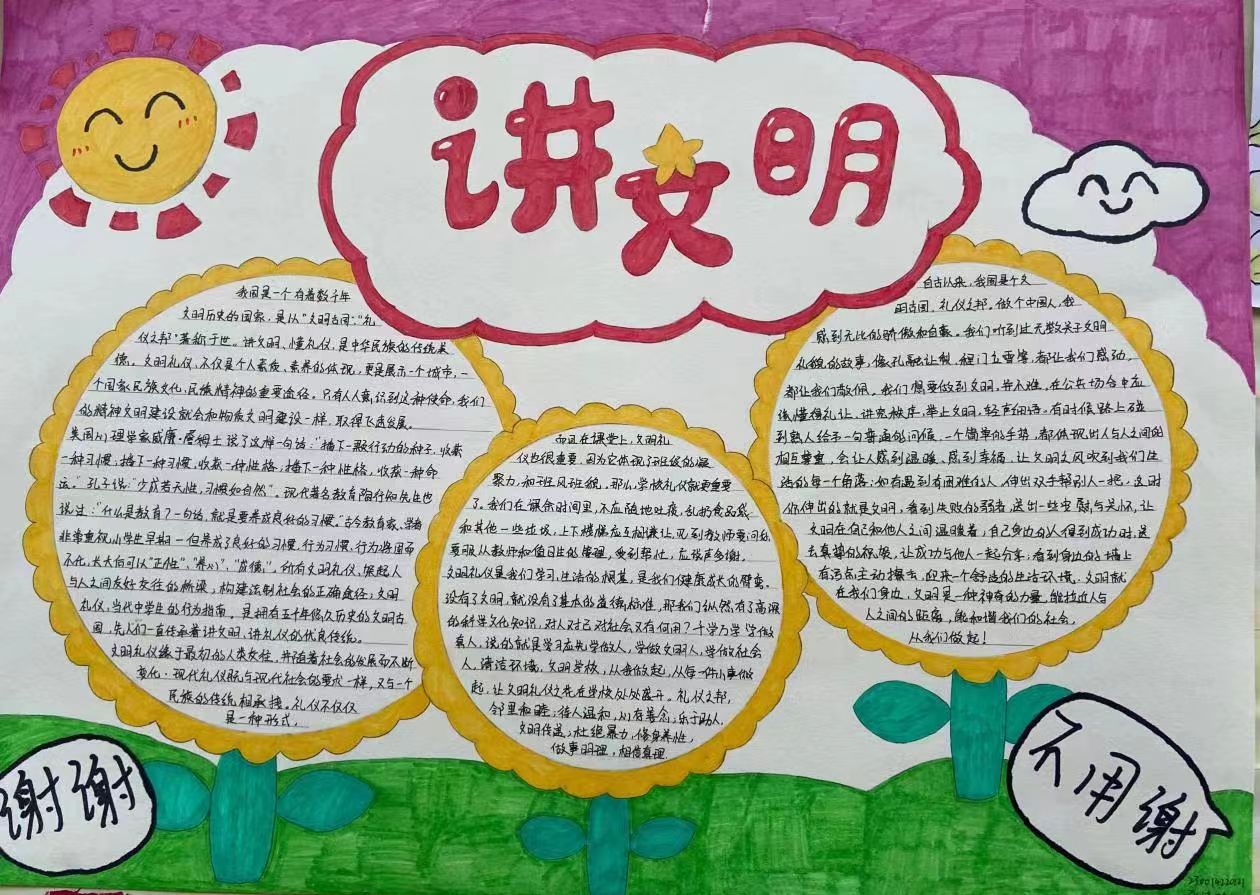 讲文明
我国是一个有着数千年
文明历史的国家，是以“文明古国”，“礼
仪之邦”著称于世。讲文明、懂礼仪，是中华民族的传统美
德。文明礼仪，不仅是个人素质、素养的体现，更是展示一个城市，一
个国家民族文化，民族精神的重要途径。只有人人意识到这种使命，我们
的精神文明建设就会和物质文明建设一样，取得飞速发展。
美国心理学家威廉·詹姆士说了这样一句话：“播下一颗行动的种子，收获
一种习惯；播下一种习惯，收获一种性格；播下一种性格，收获一种命
运。”孔子说：“少成若天性，习惯如自然”。现代著名教育陶行知先生也
说过：“什么是教育？一句话，就是要养成良好的习惯。”古今教育家、学者
非常重视，小学生早期一但养成了良好的习惯，行为习惯，行为将固而
不化，长大后可以“正性”、“养心”、“成德”。所有文明礼仪，架起人
与人之间友好交往的桥梁，构建法制社会的正确途径；文明
礼仪，当代中学生的行为指南。是拥有五千年悠久历史的文明古
国，先人们一直传承着讲文明，讲礼仪的优良传统。
文明礼仪缘于最初的人类交往，并随着社会的发展而不断
变化·现代礼仪既与现代社会的要求一样，又与一个
民族的传统相承接。礼仪不仅仅
是一种形式，
而且在课堂上，文明礼
仪也很重要，因为它体现了班级的凝
聚力，和班风班貌。那么，学校礼仪就更重要
了。我们在课余时间里，不应随地吐痰，乱扔食品袋
和其他一些垃圾，上下楼梯应互相谦让，见到教师要问好，
要服从教师和值日生的管理，受到帮忙，应说声多谢。
文明礼仪是我们学习，生活的根基，是我们健康成长的臂膀。
没有了文明，就没有了基本的道德标准，那我们纵然有了高深
的科学文化知识，对人对己对社会又有何用？千学万学学做
真人，说的就是学习应先学做人，学做文明人，学做社会
人，清洁环境，文明学校，从我做起，从每一件小事做
起，让文明礼仪之花在学校处处盛开。礼仪之邦，
邻里和睦；待人温和，心有善念；乐于助人，
文明传递；杜绝暴力，修身养性，
做事明理，相信真理.
自古以来，我国是个文
明古国，礼仪之邦。做个中国人，我
感到无比的骄傲和自豪。我们听到过无数关于文明
礼貌的故事，像孔融让梨，程门立雪等，都让我们感动，
都让我们敬佩。我们想要做到文明，并不难，在公共场合中应
该懂得礼让，讲究秩序，举止文明，轻声细语。有时候路上碰
到熟人给予一句普通的问候，一个简单的手势，都体现出人与人之间的
相互尊重，会让人感到温暖，感到幸福，让文明之风吹到我们生
活的每一个角落；如有遇到有困难的人，伸出双手帮别人一把，这时
你伸出的就是文明，看到失败的弱者送出一些安慰与关怀，让
文明在自己和他人之间温暖着，自己身边的人得到成功时，送
去真挚的祝贺，让成功与他人一起分享；看到身边的墙上
有污点主动擦去，迎来一个舒适的生活环境。文明就
在我们身边，文明是一种神奇的力量，能拉近人与
人之间的距离，能和谐我们的社会，
从我们做起！
谢谢
不用谢